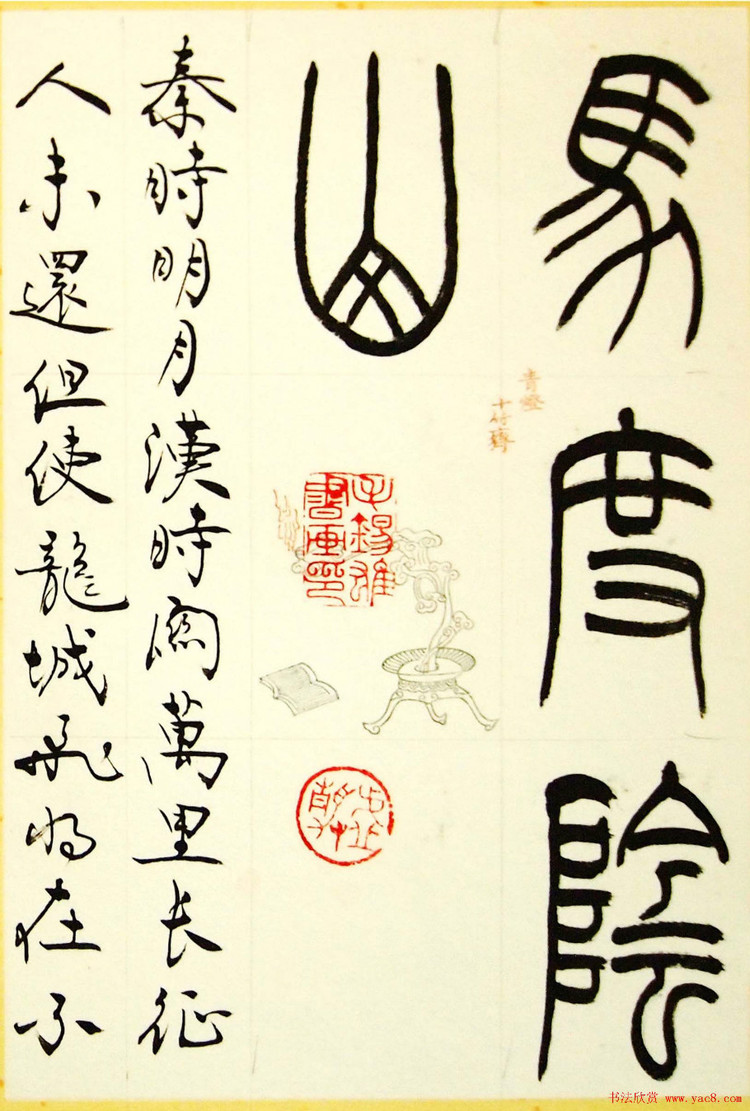 馬度陰
山
青燈
十竹齋
秦時明月漢時關萬里長征
人未還但使龍城飛將在不
书法欣赏 www.yac8.com